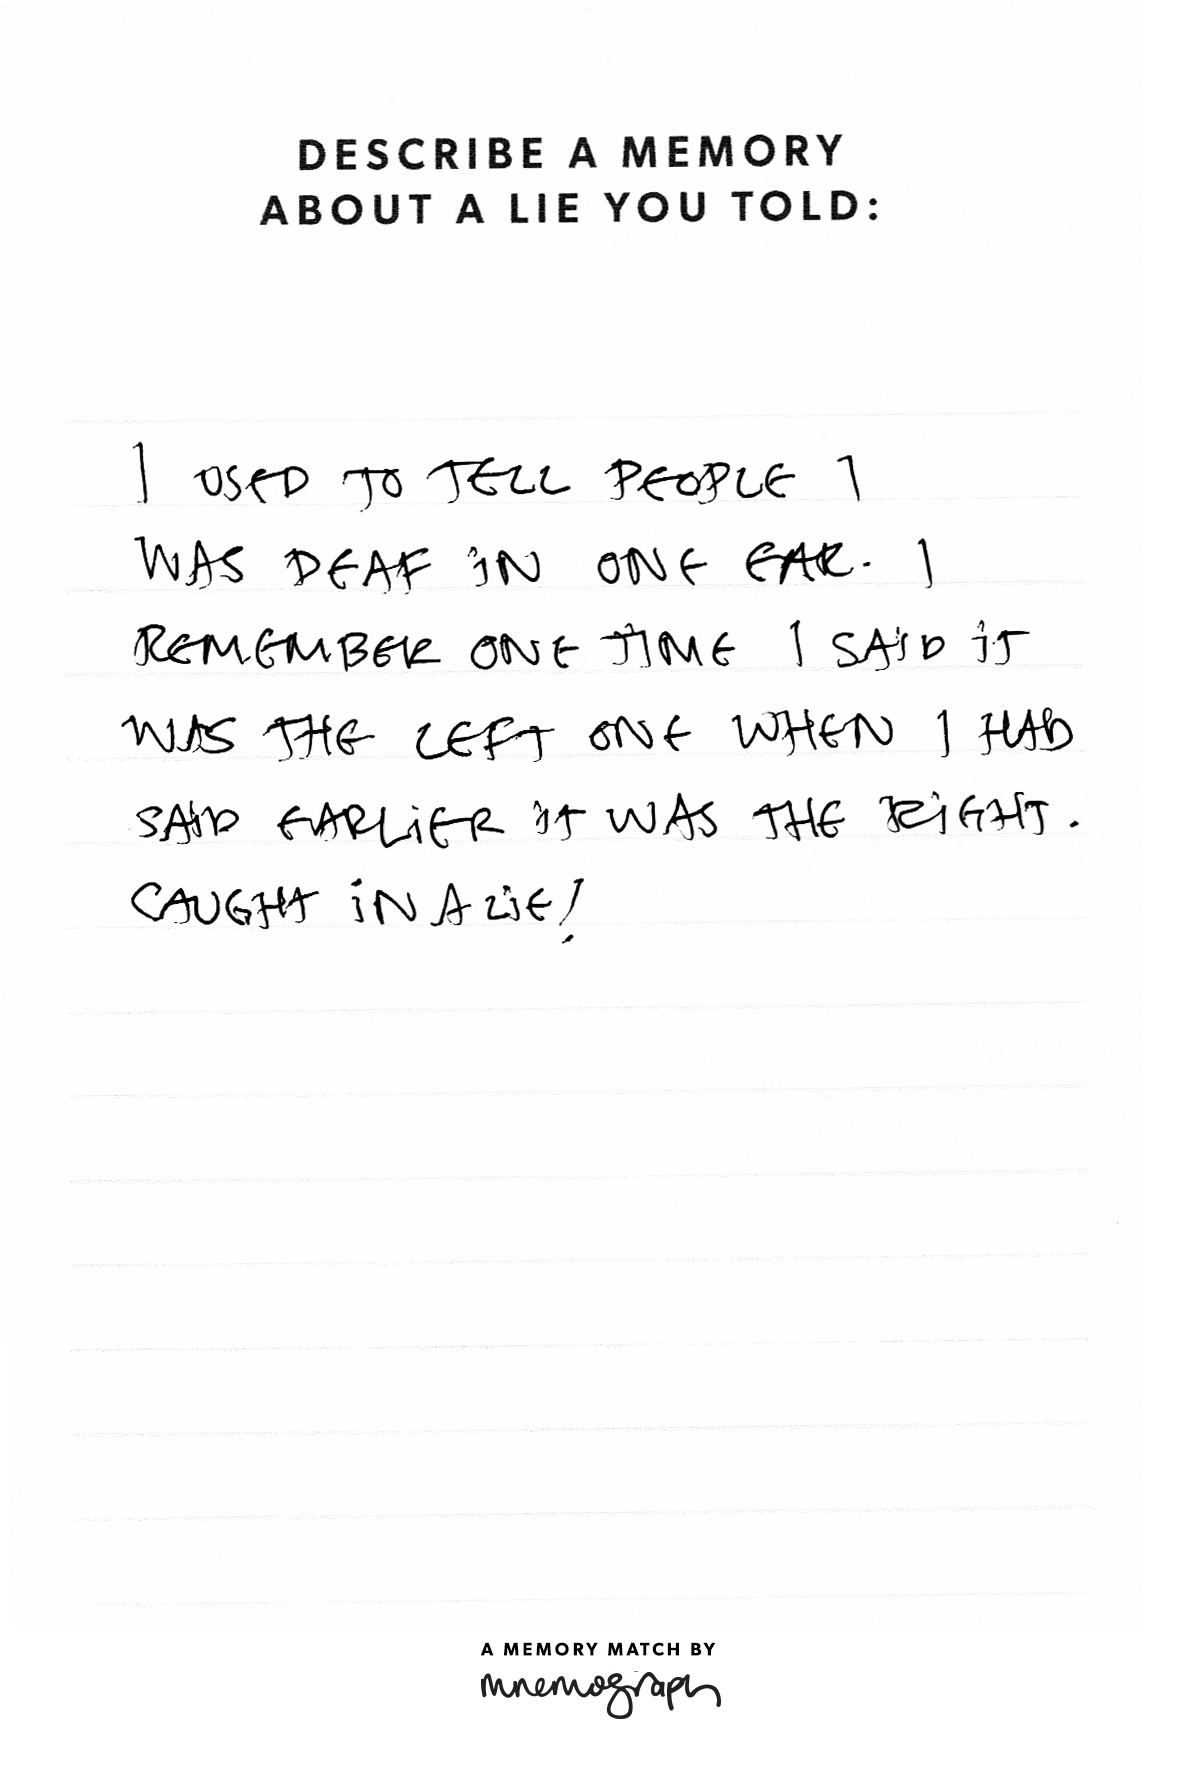 DESCRIBE A MEMORY
ABOUT A LIE YOU TOLD:
I USED TO TELL PEOPLE I
WAS DEAF IN ONE EAR. I
REMEMBER ONE TIME I SAID IT
WAS THE LEFT ONE WHEN I HAD
SAID EARLIER IT WAS THE RIGHT.
CAUGHT IN A LIE!
A MEMORY MATCH BY
mnemograph